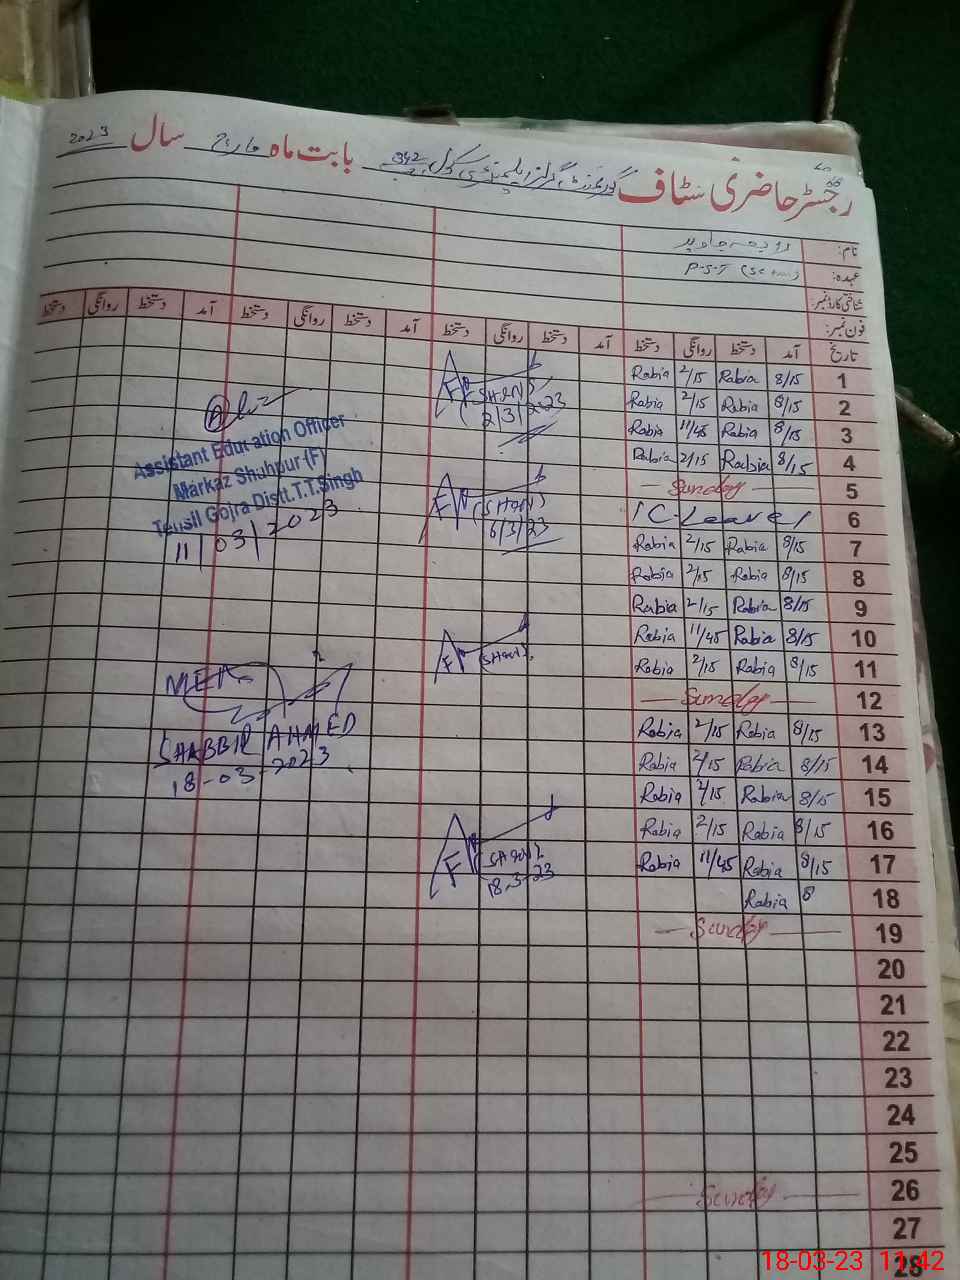 رجسٹر حاضری سٹاف گورنمنٹ گرلز ایلیمنٹری سکول 342 بابت ماہ مارچ سال 2023
نام: جاوید
عہدہ: P-S-T
شناختی کارڈ نمبر:
فون نمبر:
تاریخ آمد دستخط روانگی دستخط آمد دستخط روانگی دستخط آمد دستخط روانگی دستخط
Rabia 2/15 Rabia 8/15 1
Rabia 2/15 Rabia 8/15 2
Rabia 11/45 Rabia 8/15 3
Rabia 2/15 Rabia 8/15 4
Sunday 5
1 C-Leave 1 6
Rabia 2/15 Rabia 8/15 7
Rabia 2/15 Rabia 8/15 8
Rabia 2/15 Rabia 8/15 9
Rabia 11/45 Rabia 8/15 10
Rabia 2/15 Rabia 8/15 11
Sunday 12
Rabia 2/15 Rabia 8/15 13
Rabia 2/15 Rabia 8/15 14
Rabia 2/15 Rabia 8/15 15
Rabia 2/15 Rabia 8/15 16
Rabia 11/45 Rabia 8/15 17
Rabia 8 18
Sunday 19
20
21
22
23
24
25
Sunday 26
27
28
2/3/2023
6/3/23
18-3-23
Assistant Education Officer
Markaz Shahpur (F)
Tehsil Gojra Distt.T.T.Singh
11/03/2023
MEA
SHABBIR AHMED
18-03-2023
18-03-23 11:42